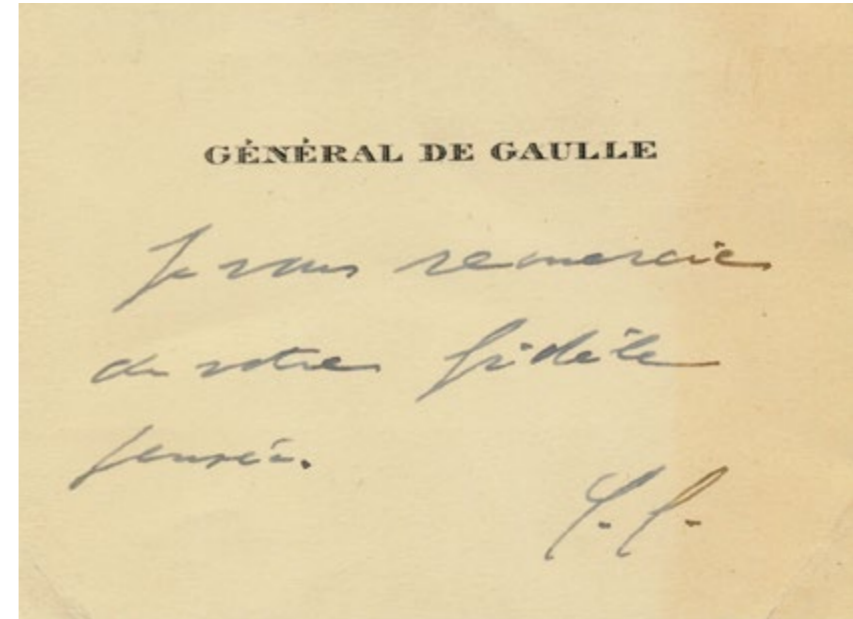 GÉNÉRAL DE GAULLE
Je vous remercie
de votre fidèle
pensée.